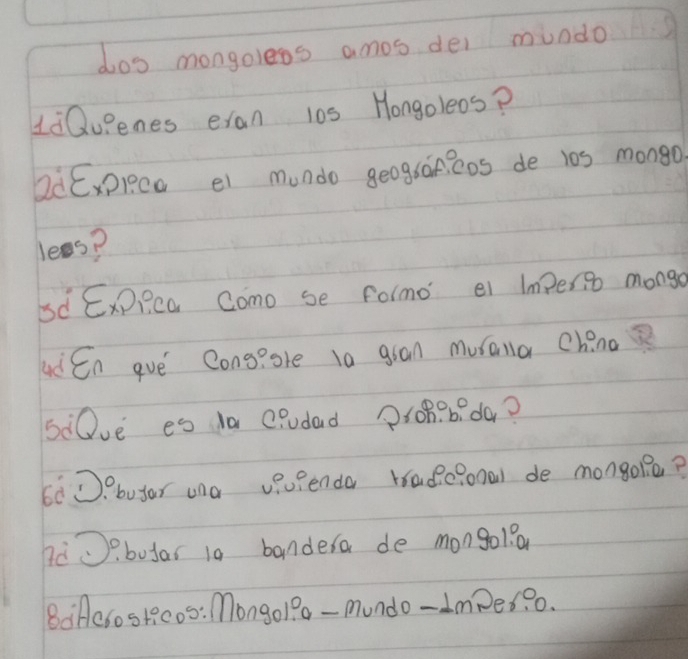 Los mongoleos amos del mundo
1¿Quienes eran los Mongoleos?
2¿Explica el mundo geográficos de los mongo-
leos?
3¿Explica Cómo se formó el Imperio mongo
4¿En qué Consiste la gran muralla China?
5¿Qué es la Ciudad Prohibida?
6¿Dibujar una vivienda tradicional de mongolia?
7¿Dibujar la bandera de mongolia
8¿Acrosticos: Mongolia - mundo - Imperio.